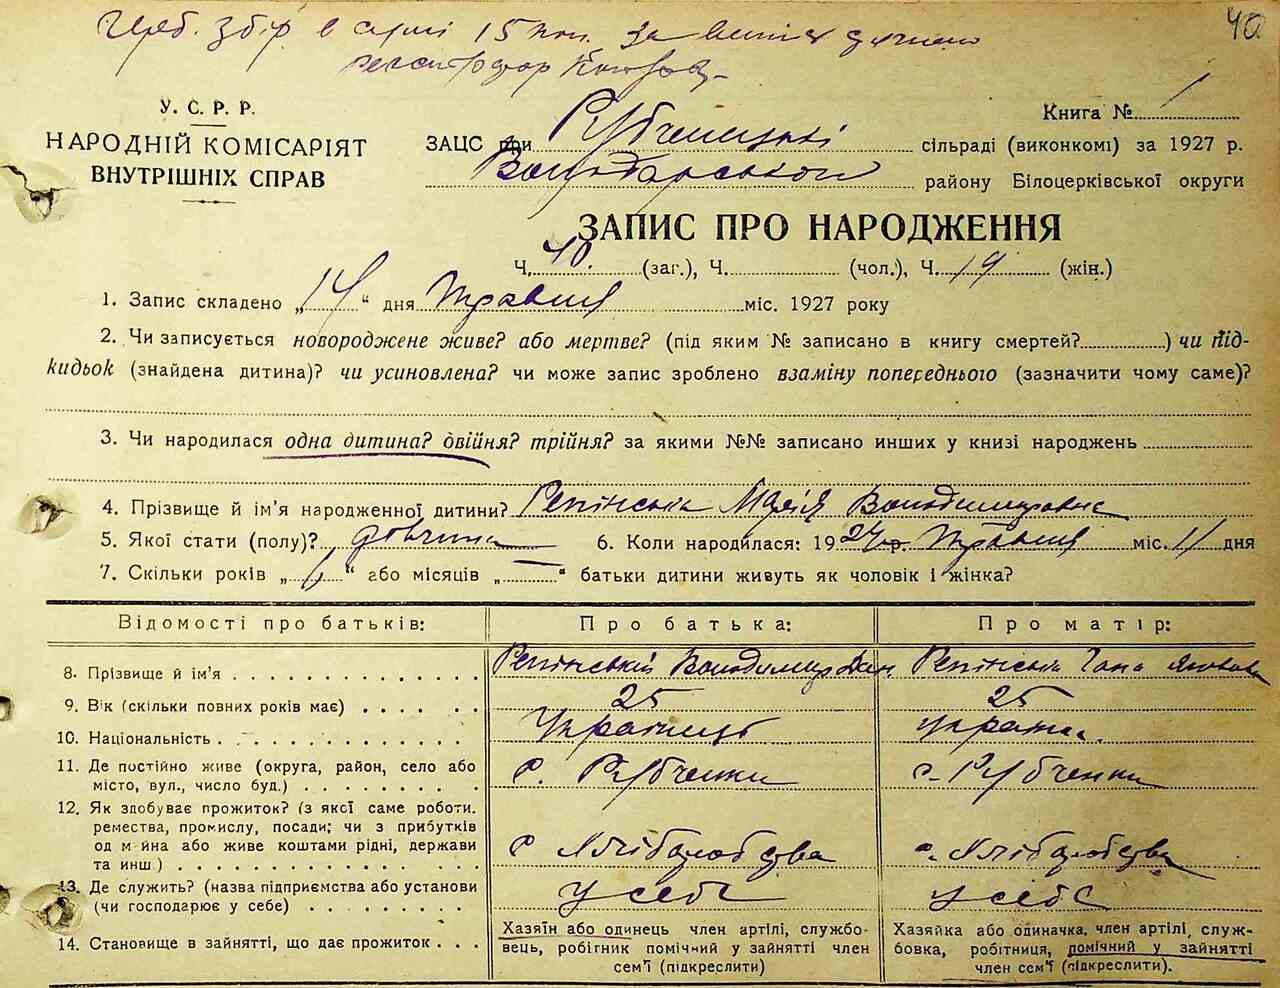 Герб. Збір в сумі 15 коп. за
40.
У. С. Р. Р.
НАРОДНІЙ КОМІСАРІЯТ
ВНУТРІШНІХ СПРАВ
Книга № 1
ЗАЦС при Рубченській сільраді (виконкомі) за 1927 р.
Володарського району Білоцерківської округи
ЗАПИС ПРО НАРОДЖЕННЯ
Ч. 40. (заг.), Ч. (чол.), Ч. 19 (жін.)
1. Запис складено „14“ дня Травня міс. 1927 року
2. Чи записується новороджене живе? або мертве? (під яким № записано в книгу смертей?) чи під-
кидьок (знайдена дитина)? чи усиновлена? чи може запис зроблено взаміну попереднього (зазначити чому саме)?
3. Чи народилася одна дитина? двійня? трійня? за якими №№ записано инших у книзі народжень
4. Прізвище й ім'я народженної дитини? Репінська Марія Володимировна
5. Якої стати (полу)? дівчина 6. Коли народилася: 1927 р. Травня міс. 11 дня
7. Скільки років „ “ або місяців „ “ батьки дитини живуть як чоловік і жінка?
Відомості про батьків: Про батька: Про матір:
8. Прізвище й ім'я Репінський Володимир Репінська Гана Яковова
9. Вік (скільки повних років має) 25 25
10. Національність Українець українка
11. Де постійно живе (округа, район, село або
місто, вул., число буд.) с. Рубченки с. Рубченки
12. Як здобуває прожиток? (з якої саме роботи.
ремества, промислу, посади; чи з прибутків
од майна або живе коштами рідні, держави
та инш.) с Хліборобства с. Хліборобства
13. Де служить? (назва підприємства або установи
(чи господарює у себе) у себе у себе
14. Становище в зайнятті, що дає прожиток
Хазяїн або одинець член артілі, службо-
вець, робігник помічний у зайнятті член
сем'ї (підкреслити)
Хазяйка або одиначка, член артілі, служ-
бовка, робітниця, помічний у зайнятті
член сем'ї (підкреслити).